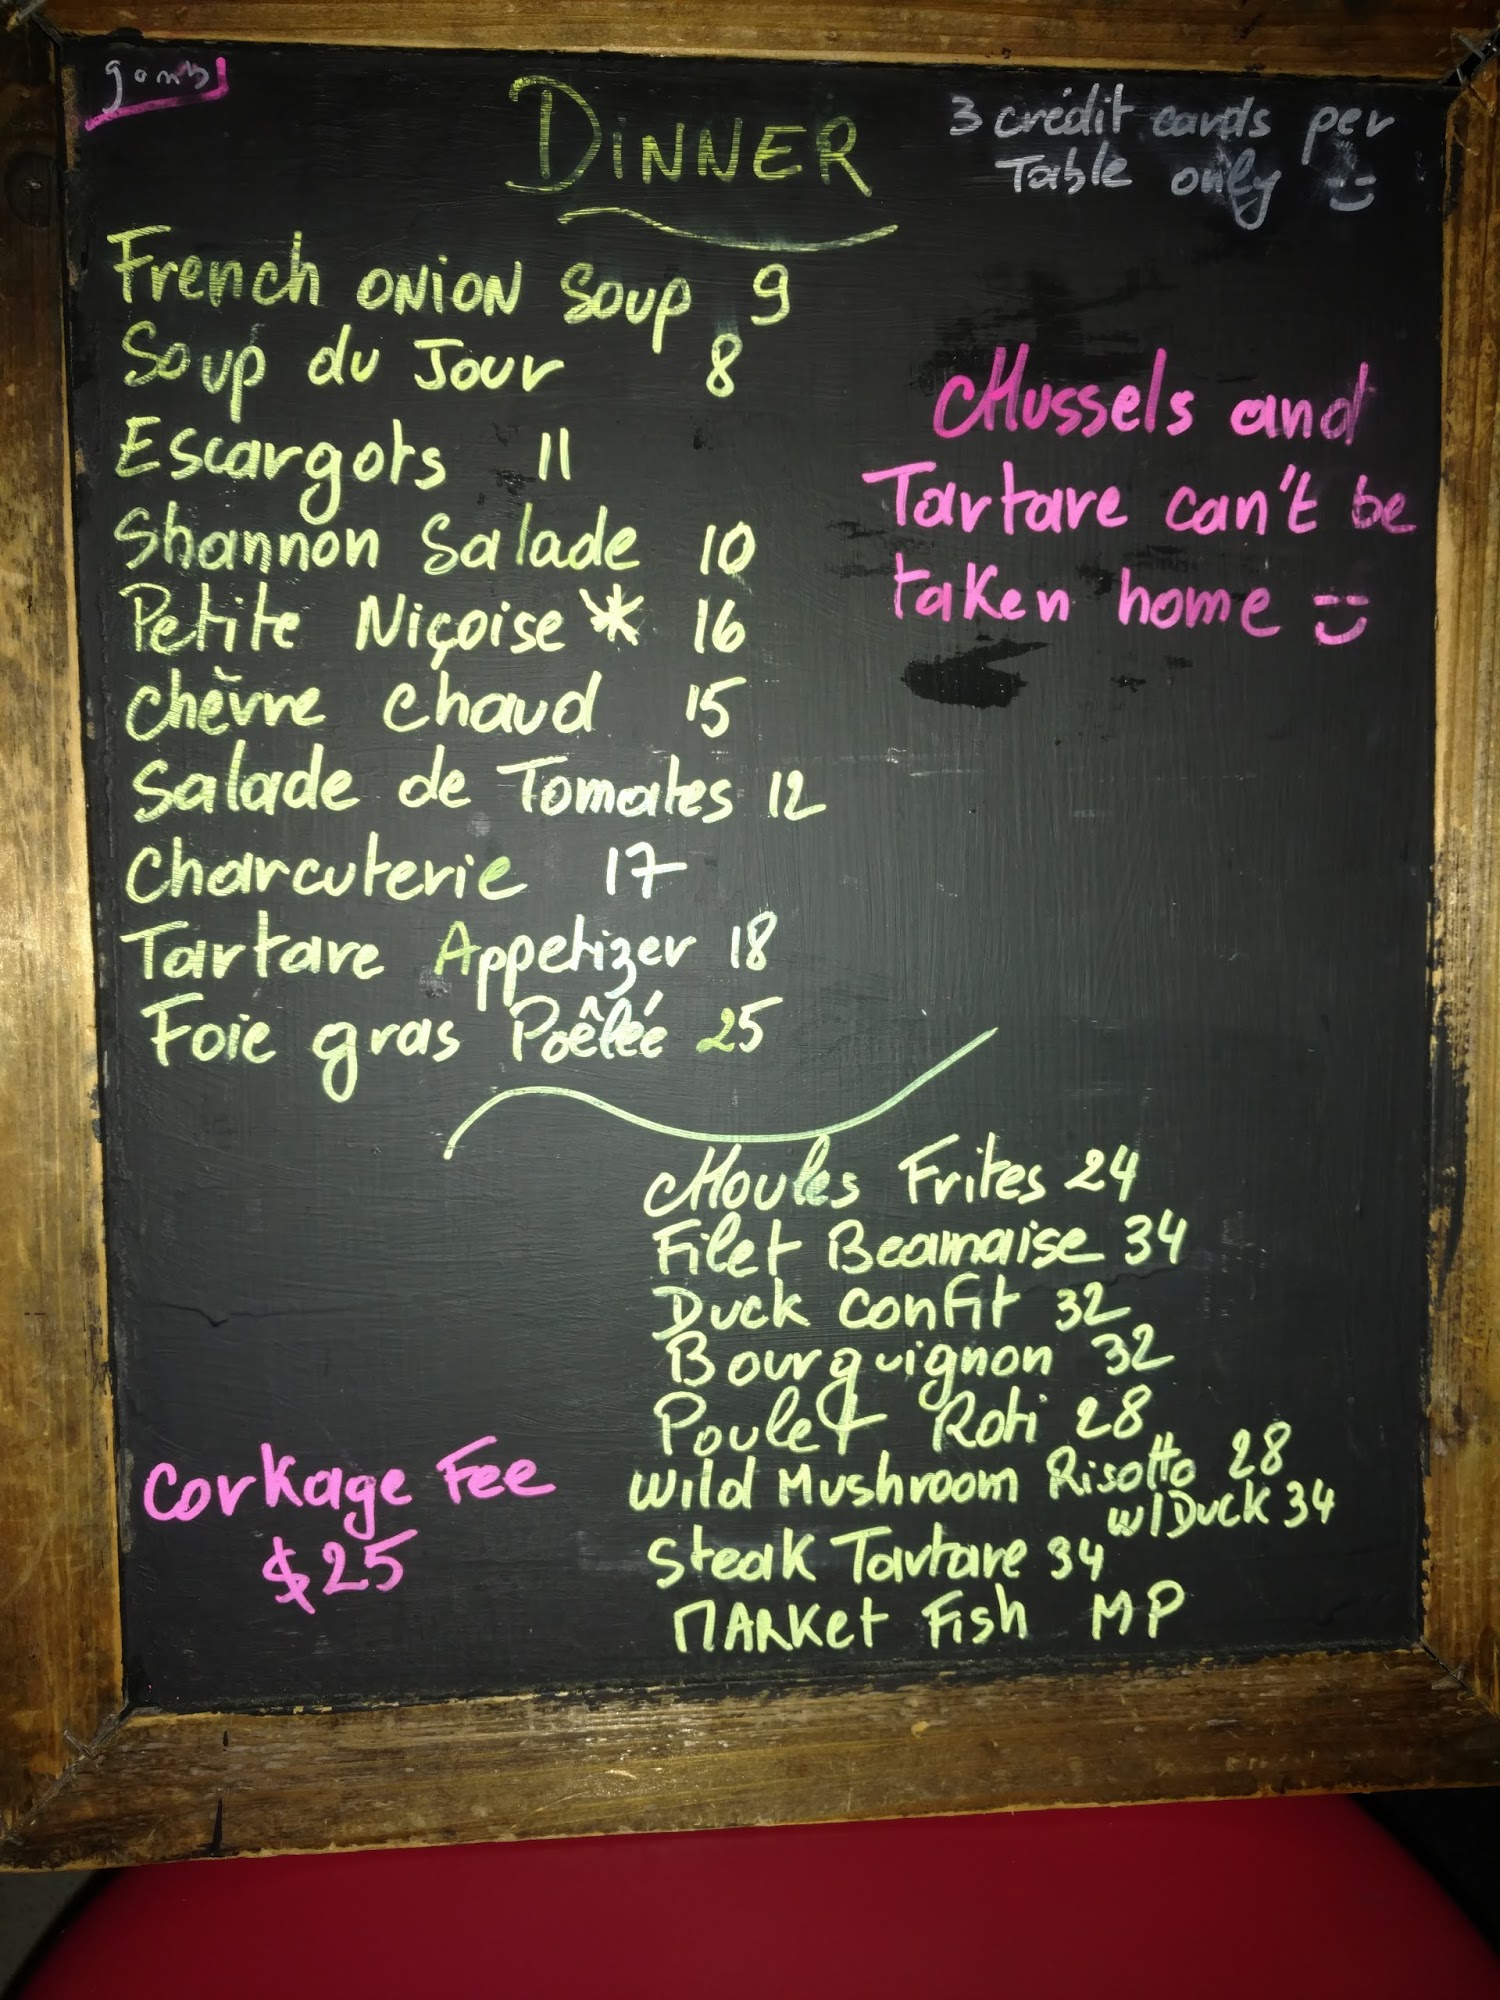 DINNER
3 crédit cards per
Table only
French ONION Soup 9
Soup du Jour 8
Escargots 11
Shannon Salade 10
Petite Niçoise * 16
Chèvre Chaud 15
Salade de Tomates 12
Charcuterie 17
Tartare Appetizer 18
Foie gras Poêlée 25
Mussels and
Tartare can't be
taken home
Moules Frites 24
Filet Bearnaise 34
Duck Confit 32
Bourguignon 32
Poulet Roti 28
Wild Mushroom Risotto 28
w/Duck 34
Steak Tartare 34
MARKet Fish MP
Corkage Fee
$25